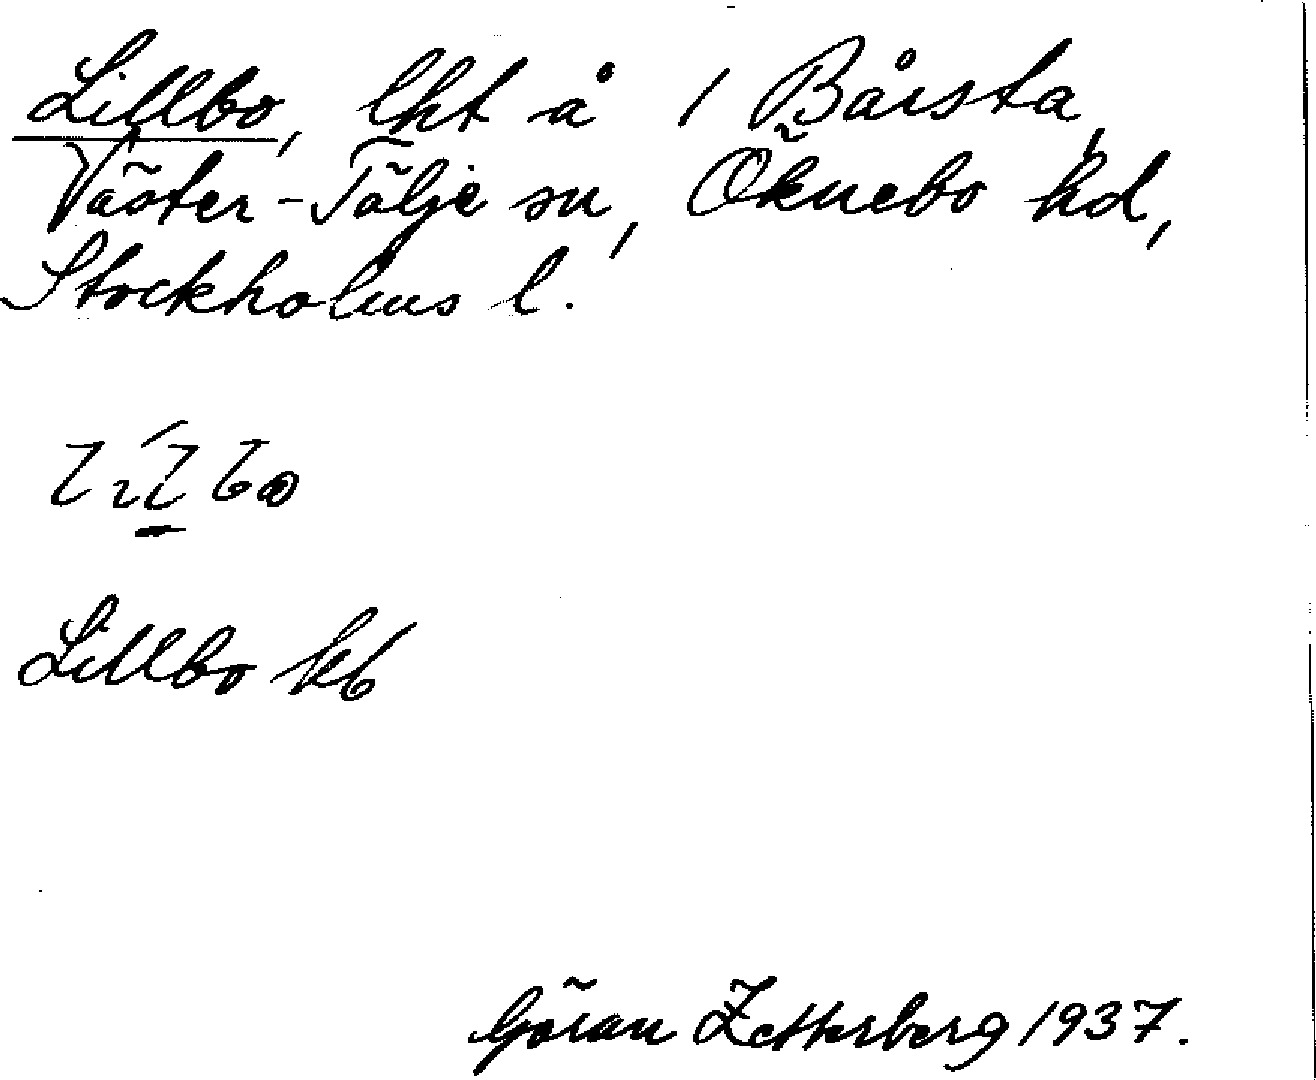 Lillbo, lht å 1 Bårsta,
Väster-Tälje sn, Öknebo hd,
Stockholms l.
Lillbo kb
Göran Zetterberg 1937.